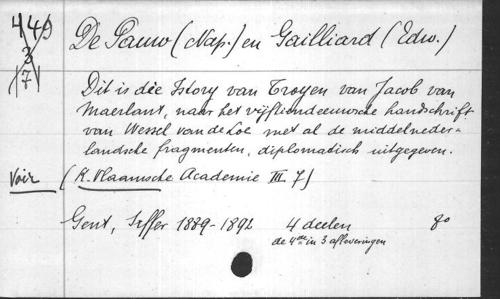 449
3
7
De Pauw (Nap.) en Gailliard (Edw.)
Dit is die Istory van Troyen van Jacob van
Maerlant, naar het vijftiendeeuwsche handschrift
van Wessel van de Loe met al de middelneder-
landsche fragmenten, diplomatisch uitgegeven.
Voir (K. Vlaamsche Academie III 7)
Gent, Siffer 1889-1892 4 deelen 8o
de 4de in 3 afleveringen